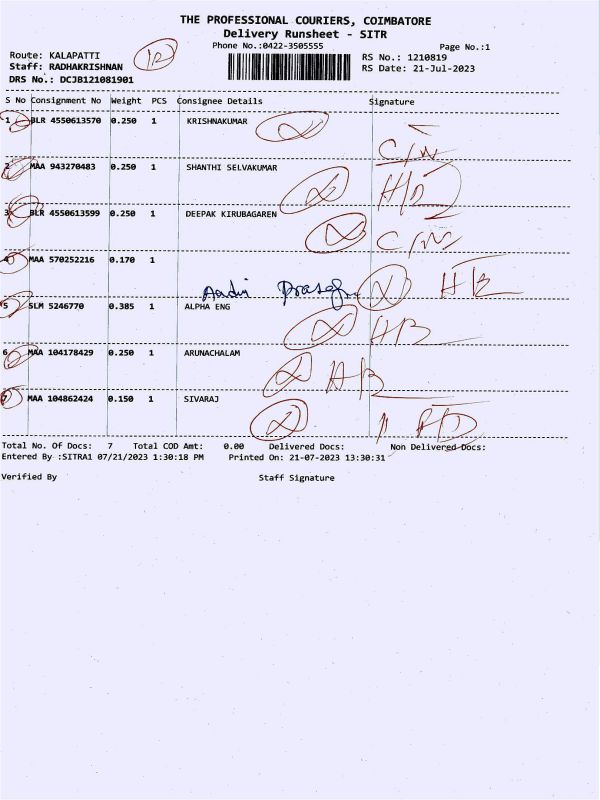 THE PROFESSIONAL COURIERS, COIMBATORE
Delivery Runsheet - SITR
Phone No.:0422-3505555
Page No.:1
Route: KALAPATTI
Staff: RADHAKRISHNAN
DRS No.: DCJB121081901
RS No.: 1210819
RS Date: 21-Jul-2023
S No Consignment No Weight PCS Consignee Details Signature
1 BLR 4550613570 0.250 1 KRISHNAKUMAR
2 MAA 943270483 0.250 1 SHANTHI SELVAKUMAR
3 BLR 4550613599 0.250 1 DEEPAK KIRUBAGAREN
4 MAA 570252216 0.170 1
5 SLM 5246770 0.385 1 ALPHA ENG
6 MAA 104178429 0.250 1 ARUNACHALAM
7 MAA 104862424 0.150 1 SIVARAJ
Total No. Of Docs: 7 Total COD Amt: 0.00 Delivered Docs: Non Delivered Docs:
Entered By :SITRA1 07/21/2023 1:30:18 PM Printed On: 21-07-2023 13:30:31
Verified By Staff Signature